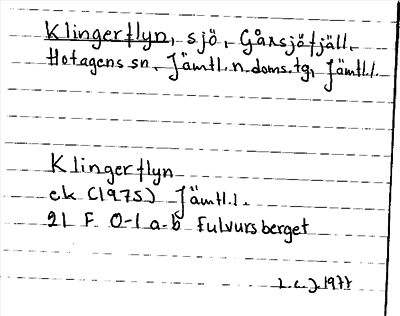 Klingerflyn, sjö, Gånsjöfjäll,
Hotagens sn, Jämtl. n. doms. tg, Jämtl. l.
Klingerflyn
ek (1975) Jämtl. l.
21 F 0-1 a-b Fulvursberget
1977